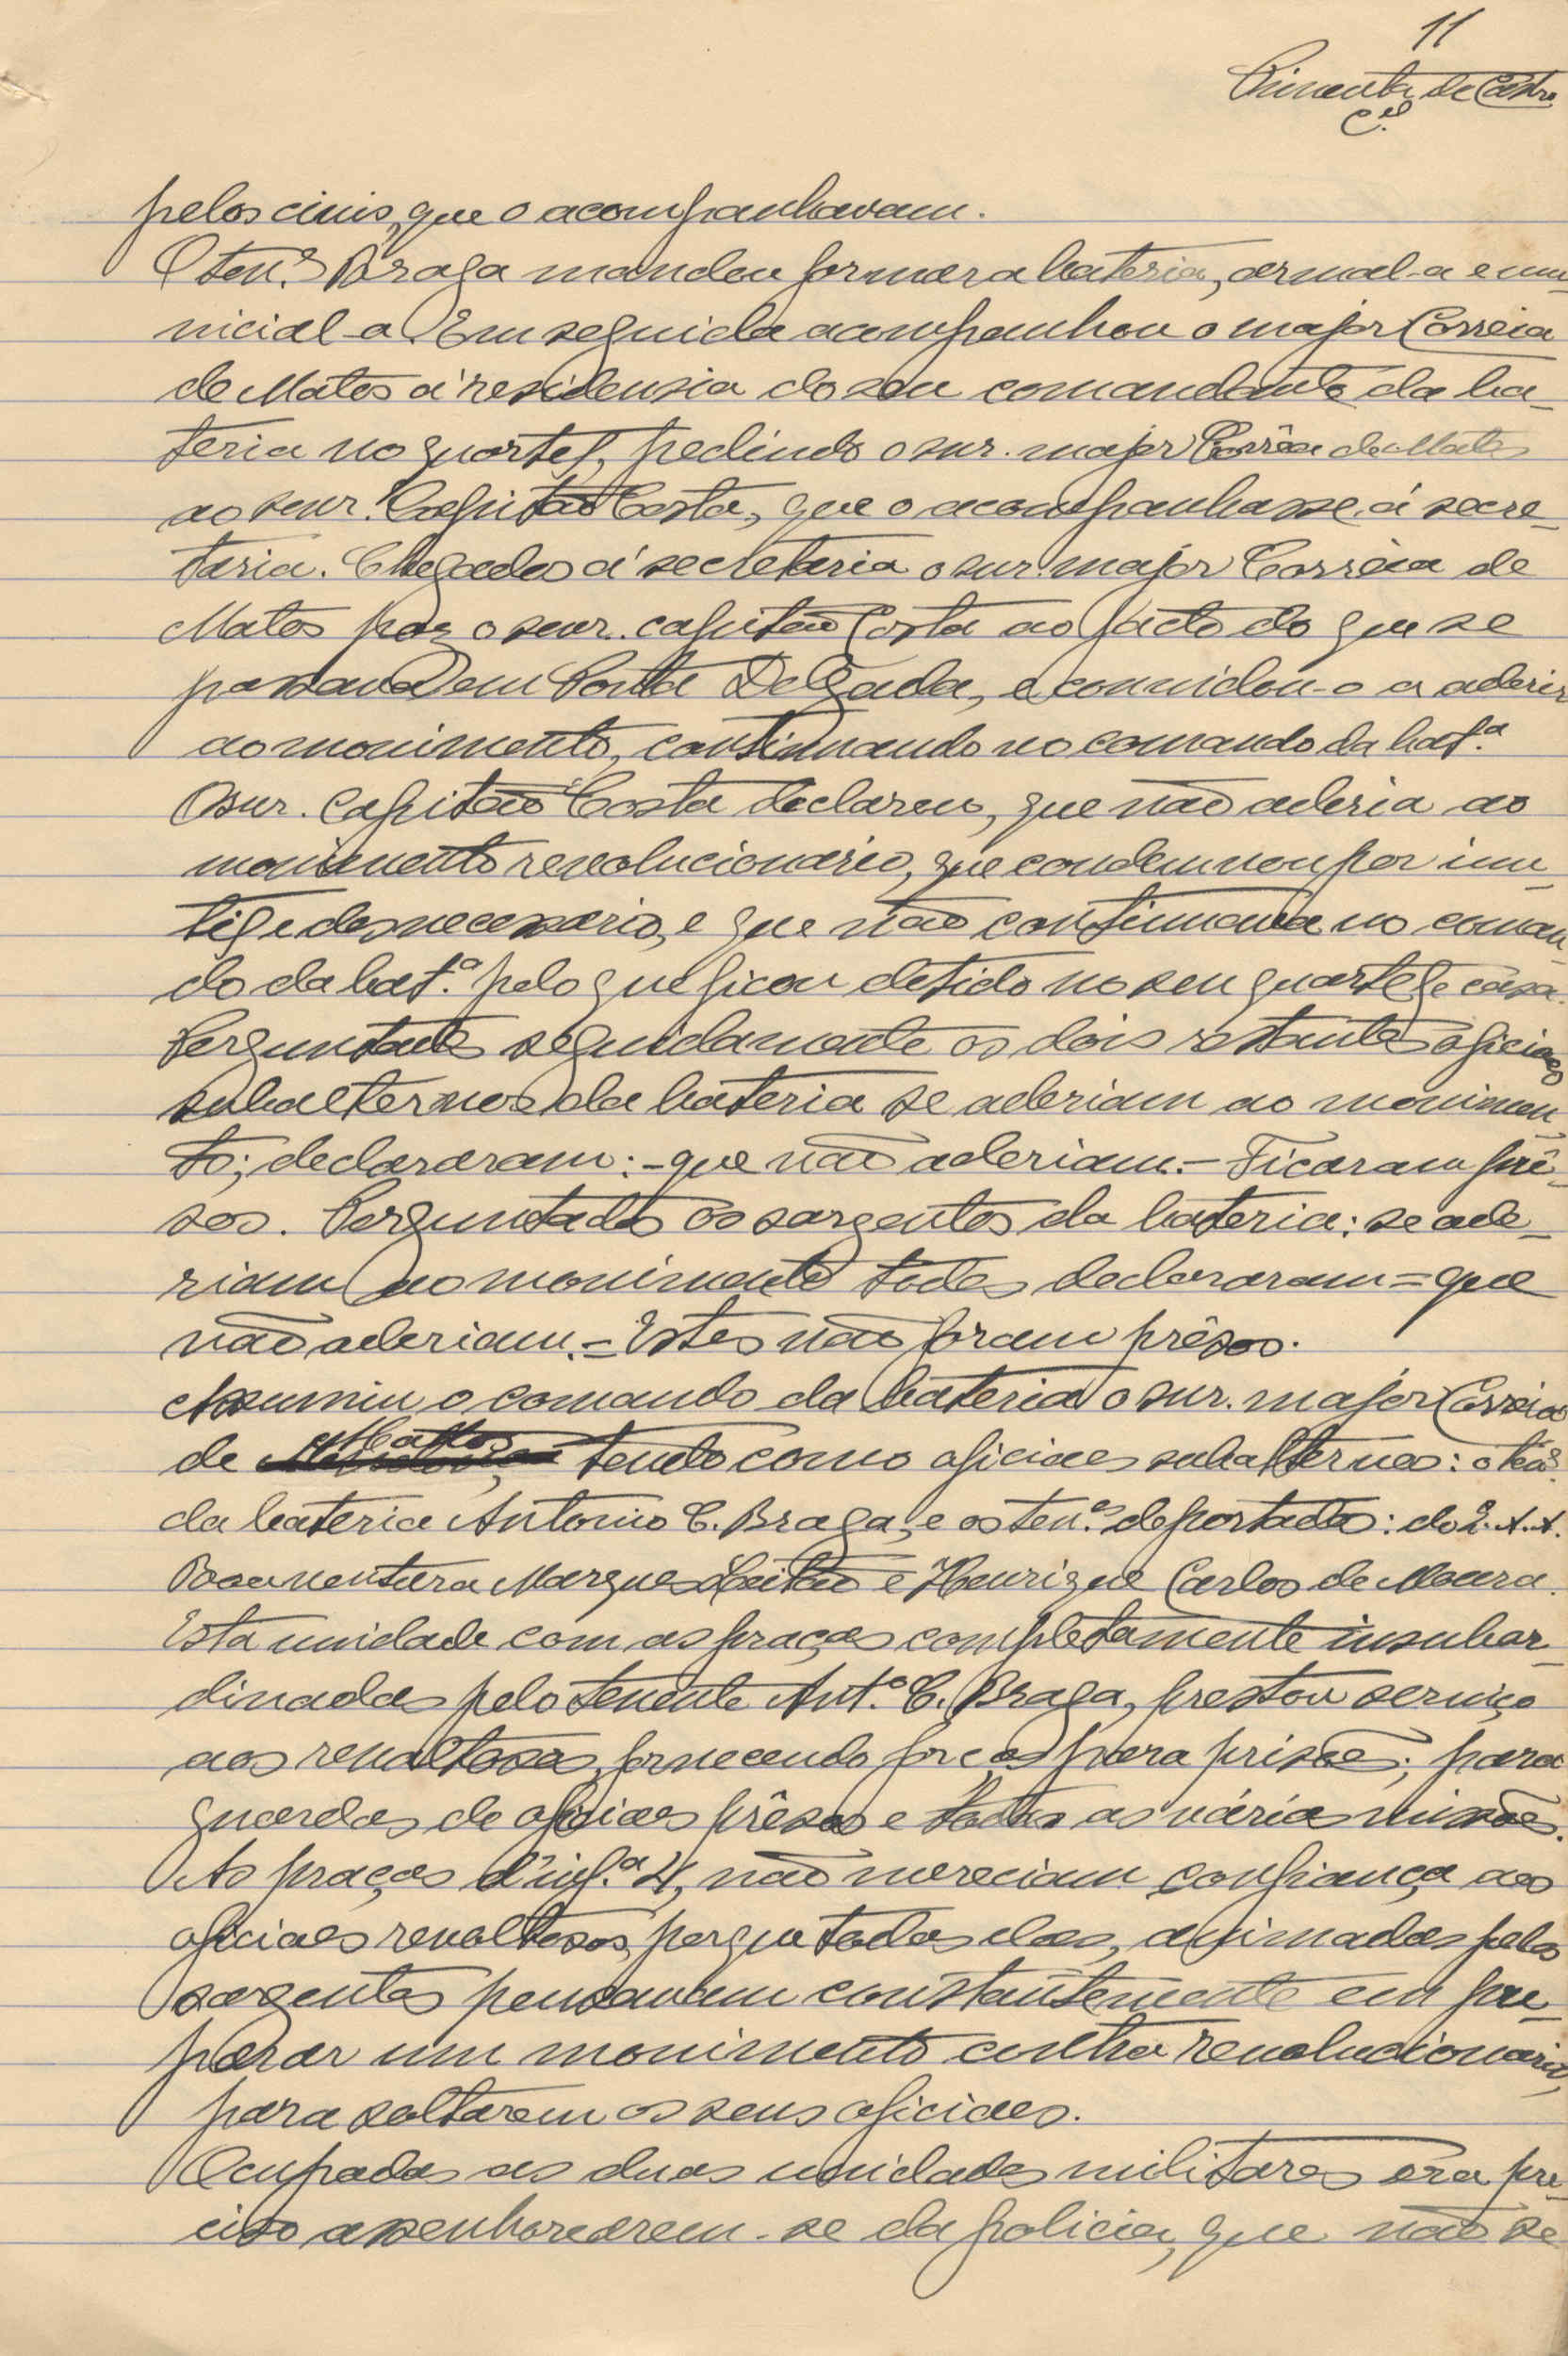 11
Pimenta de Castro
C.el
pelos civis, que o acompanhavam.
O ten.e Braga mandou formar a bateria, armal-a e mu-
nicial-a. Em seguida acompanhou o major Correia
de Matos á residensia do seu comandante da ba-
teria no quartel, pedindo o snr. major Corrêia de Matos
ao senr. Capitão Costa, que o acompanhasse á secre-
taria. Chegados á secretaria o snr. major Corrêia de
Matos poz o senr. capitão Costa ao facto do que se
passava em Ponta Delgada, e convidou-o a aderir
ao movimento, continuando no comando da bat.ª
O snr. Capitão Costa declarou, que não aderia ao
movimento revolucionário, que condemnou por inu-
til e desnecessario, e que não continuava no coman-
do da bat.ª pelo que ficou detido no seu quartel e casa.
Perguntado seguidamente os dois restantes oficiaes
subalternos da bateria se aderiam ao movimen-
to; declararam: - que não aderiam. - Ficaram prê-
sos. Perguntado os sargentos da bateria: se ade-
riam ao movimento todos declararam = que
não aderiam. = Estes não foram prêsos.
Assumiu o comando da bateria o snr. major Correia
de Mattos, tendo como oficiaes subalternos: o ten.e
da bateria Antonio C. Braga, e os ten.es deportados: do 2. A. A.
Boaventura Marques Leitão e Henrique Carlos de Moura.
Esta unidade com as praças completamente insubor-
dinadas pelo tenente Ant.º C. Braga, prestou serviço
aos revoltosos, fornecendo forças para prisões; para
guardas de oficiaes prêsos e todas as várias missões.
As praças d'inf.ª 4, não mereciam confiança aos
oficiaes revoltosos, porque todas elas, animadas pelos
sargentos pensavam constantemente em pre-
parar um movimento contra revolucionario,
para soltarem os seus oficiaes.
Ocupadas as duas unidades militares era pre-
ciso assenhorearem-se da policia, que não se